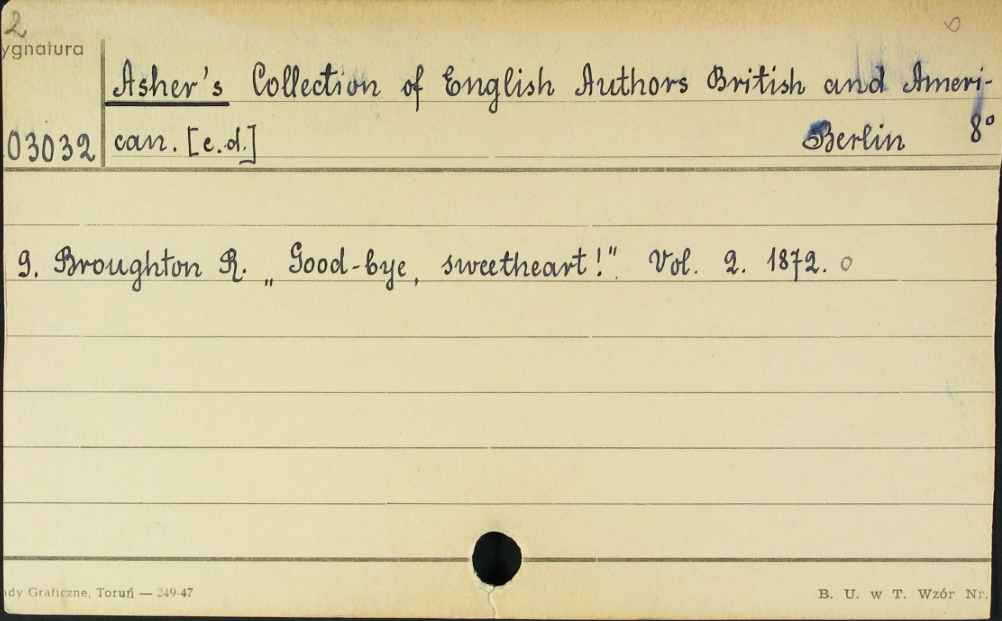 2
ygnatura
Asher's Collection of English Authors British and Ameri-
03032 can. [e.d.] Berlin 8°
9. Broughton R. „Good-bye, sweetheart!" Vol. 2. 1872. o
dy Graficzne, Toruń — 249-47 B. U. w T. Wzór Nr.